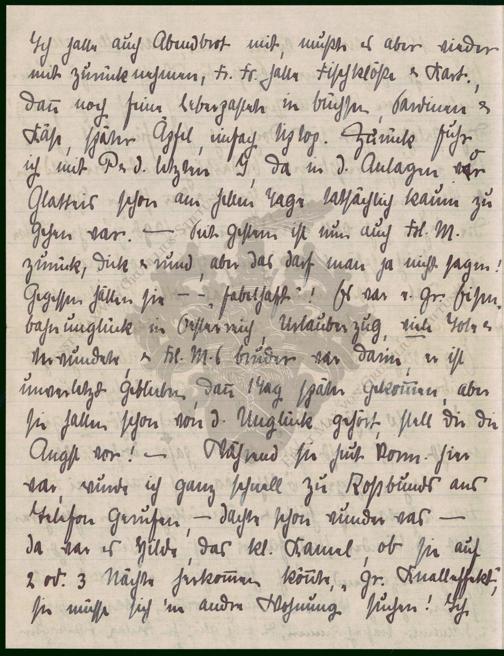 Ich hatte auch Abendbrot mit, mußte es aber wieder
mit zurück nehmen, Fr. Fr. hatte Fischklöße & Kart.,
dan̄ noch feine Leberpastete in büchsen, Sardinen &
Käse, später Äpfel, einfach tiptop. Zurück fuhr
ich mit P & d. letzten 9, da in d. Anlagen vor
Glatteis schon am hellen Tage tatsächlich kaum zu
gehen war. — Seit gestern ist nun auch Frl. M.
zurück, dick & rund, aber das darf man ja nicht sagen!
Gegessen hätten sie — "fabelhaft"! Es war e. gr. Eisen-
bahnunglück in Oesterreich, Urlauberzug, viele Tote &
Verwundete, & Frl. M.s bruder war darin, er ist
unverletzt geblieben, dan̄ 1 Tag später gekom̄en, aber
sie hatten schon von d. Unglück gehört, stell dir die
Angst vor! — Während sie heut Vorm. hier
war, wurde ich ganz schnell zu Roßbunds ans
Telefon gerufen, — dachte schon wunder was —
da war es Hilde, das kl. Kamel, ob sie auf
2 od. 3 Nächte herkom̄en kön̄te, "gr. Knalleffekt",
sie müsse sich 'ne andre Wohnung suchen! Ich